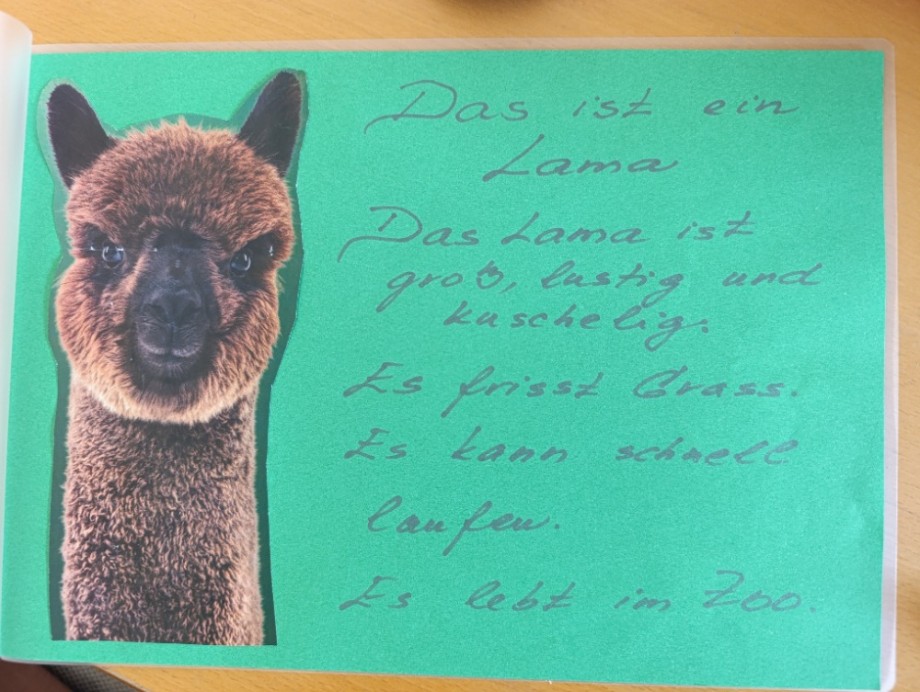 Das ist ein
Lama
Das Lama ist
groß, lustig und
kuschelig.
Es frisst Grass.
Es kann schnell
laufen.
Es lebt im Zoo.